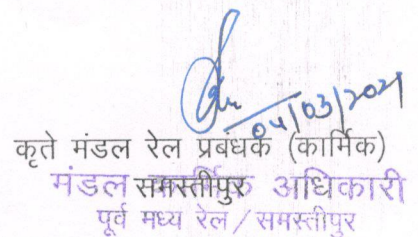 04/03/2021
कृते मंडल रेल प्रबंधक (कार्मिक)
समस्तीपुर
मंडल कार्मिक अधिकारी
पूर्व मध्य रेल/समस्तीपुर